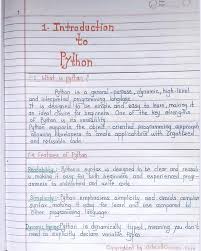 1. Introduction
to
Python
1.1. What is python?
Python is a general-purpose, dynamic, high-level
and interpreted programming language.
It is designed to be simple and easy to learn, making it
an ideal choice for beginners. One of the key strengths
of Python is its versatility.
Python supports the object-oriented programming approach
allowing developers to create applications with organized
and reusable code.
Features of Python
Readability: Python's syntax is designed to be clear and
making it easy for both beginners and experienced progr-
ammers to understand and write code
Simplicity: Python emphasizes simplicity and complex
syntax, making it easier to learn and use compared to
other programming language.
Python is dynamically typed, meaning you don't
need to explicitly declare variable types.